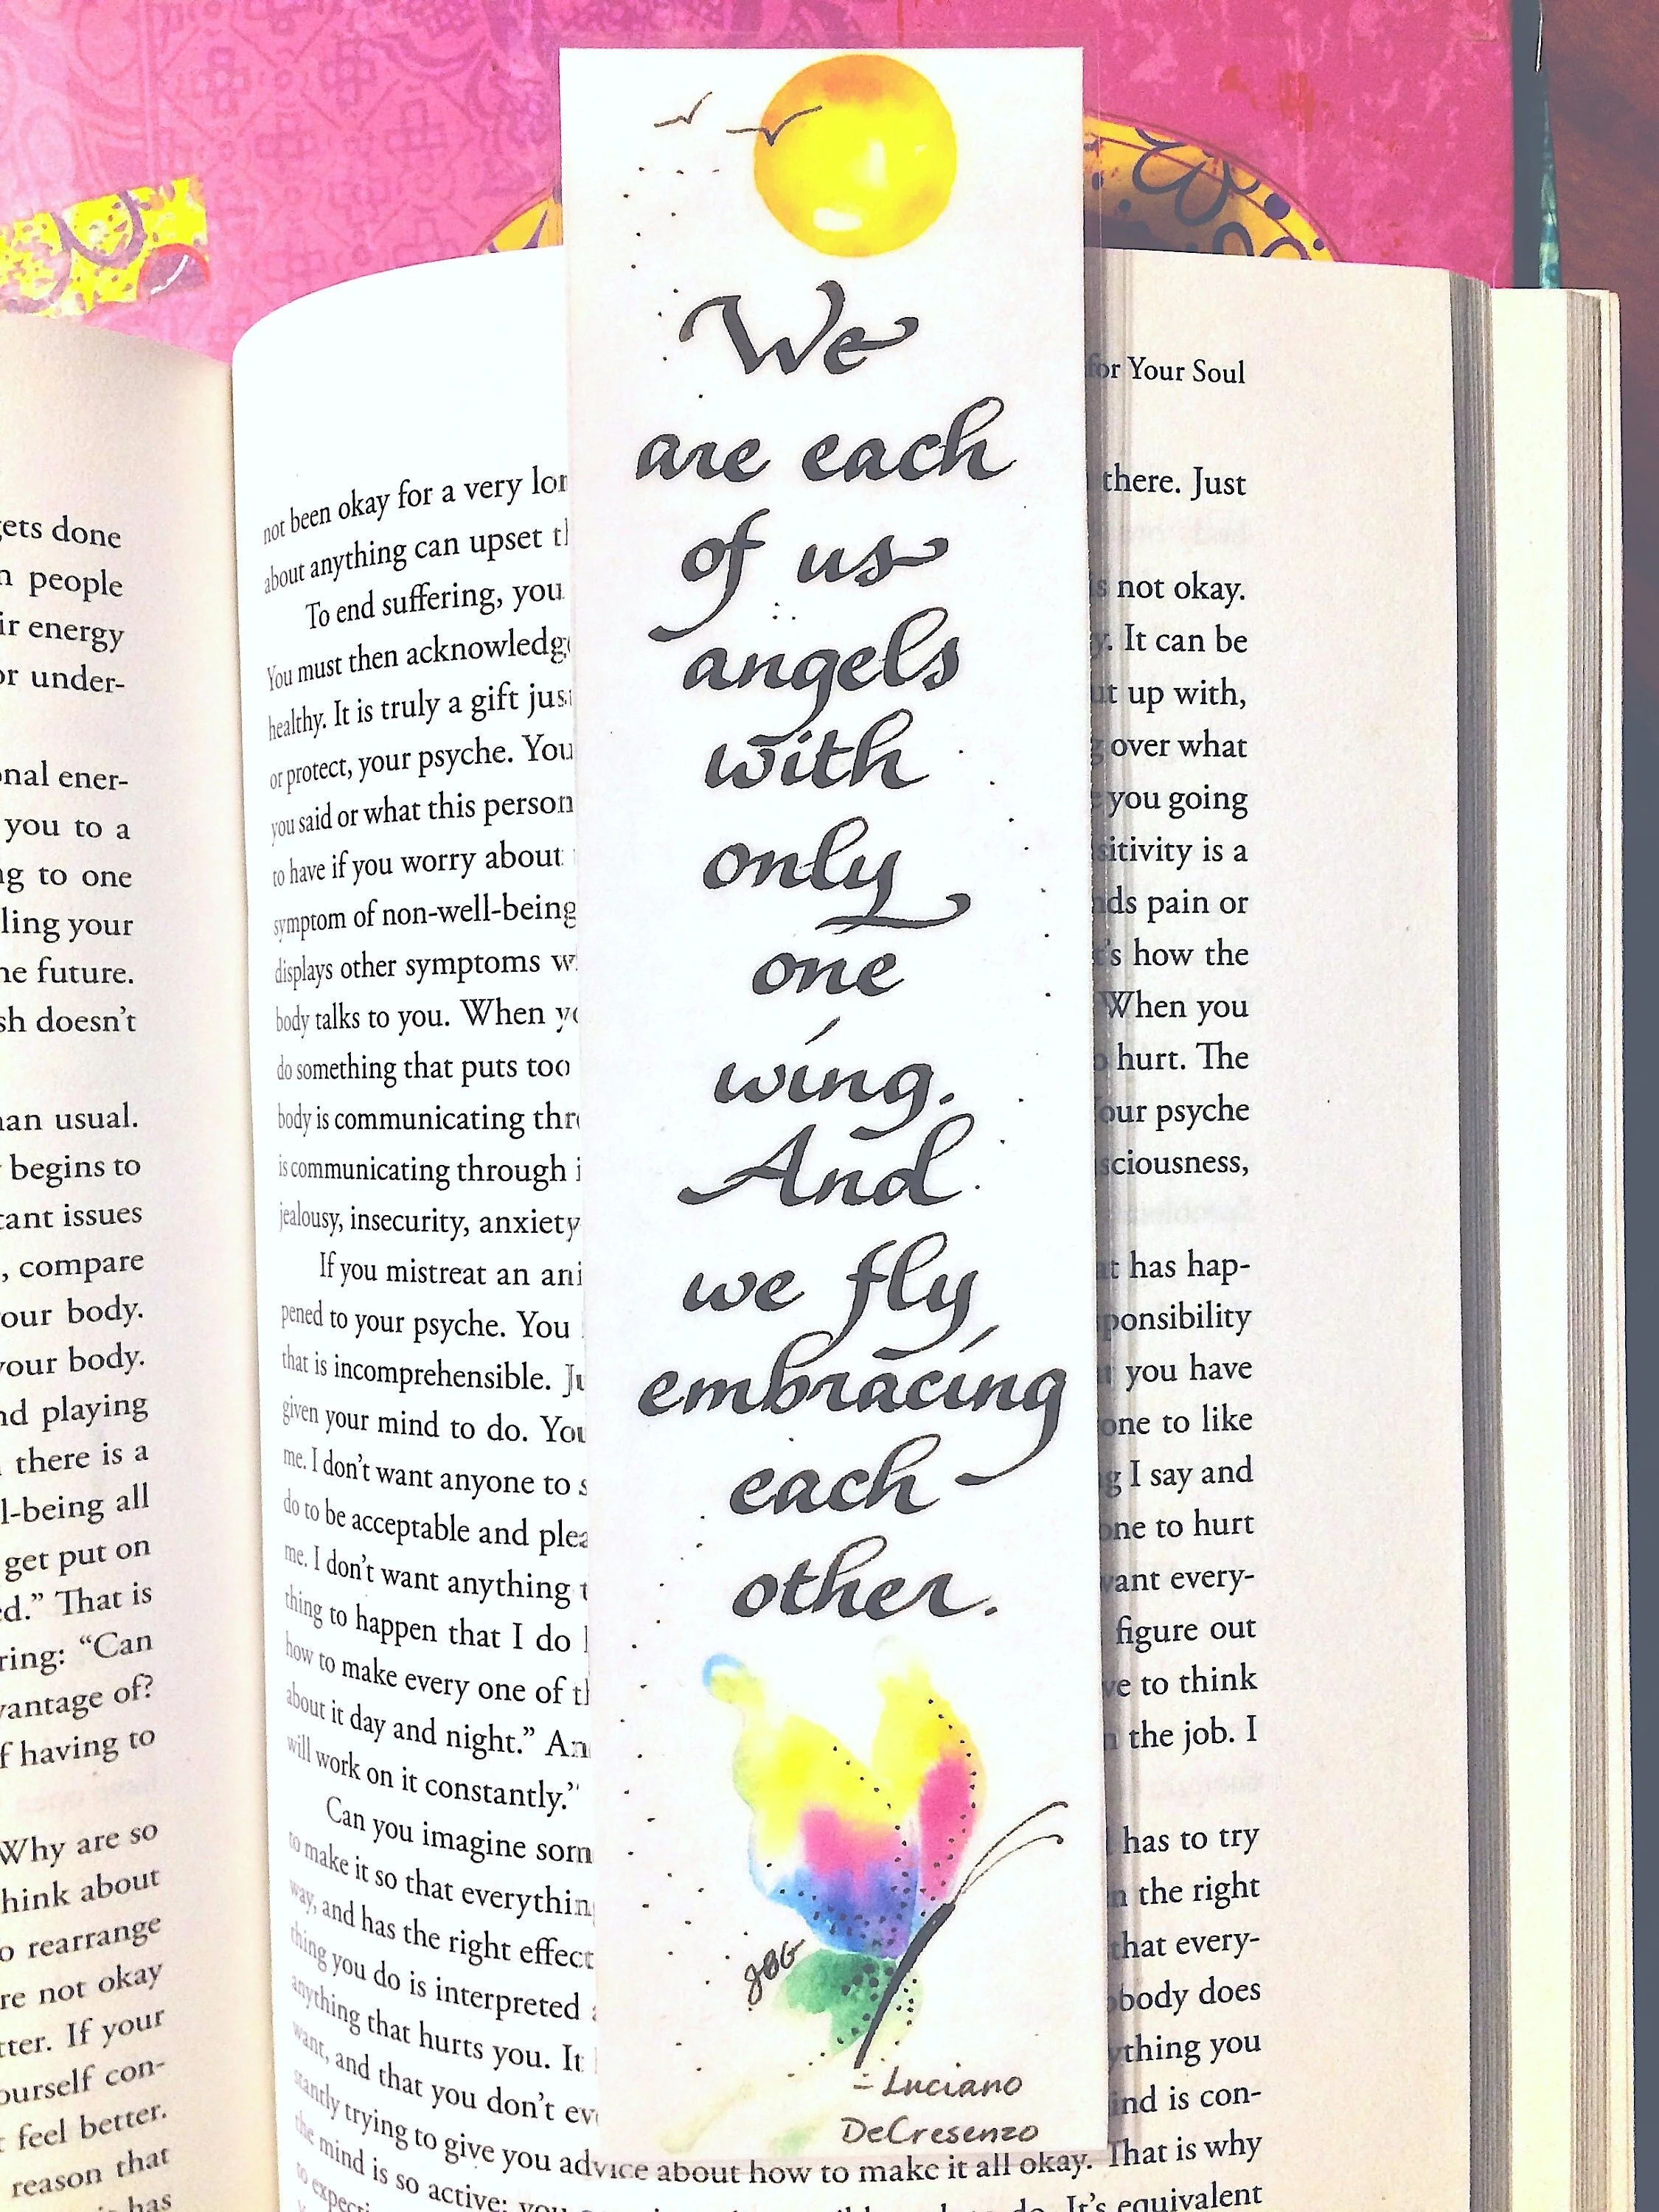 We
are each
of us
angels
with
only
one
wing.
And
we fly
embracing
each
other.
JBG
- Luciano
DeCresenzo
ets done
people
energy
under-
ener-
you to a
to one
your
future.
doesn't
usual.
begins to
issues
, compare
your body.
your body.
playing
there is a
l-being all
get put on
That is
"Can
of?
having to
Why are so
think about
rearrange
not okay
If your
yourself con-
feel better.
reason that
has
for Your Soul
not been okay for a very there. Just
about anything can upset
To end suffering, you not okay.
You must then acknowledge It can be
healthy. It is truly a gift up with,
or protect, your psyche. You over what
you said or what this person you going
to have if you worry about is a
symptom of non-well-being pain or
displays other symptoms how the
body talks to you. When When you
do something that puts too hurt. The
body is communicating psyche
is communicating through
jealousy, insecurity, anxiety
If you mistreat an has hap-
pened to your psyche. You
that is incomprehensible. you have
given your mind to do. to like
me. I don't want anyone to I say and
do to be acceptable and to hurt
me. I don't want anything every-
thing to happen that I do figure out
how to make every one of to think
about it day and night." the job. I
will work on it constantly."
Can you imagine has to try
to make it so that the right
way, and has the right that every-
thing you do is interpreted does
anything that hurts you. It you
want, and that you don't is con-
stantly trying to give you advice about how to make it all okay. That is why
the mind is so active; It's equivalent